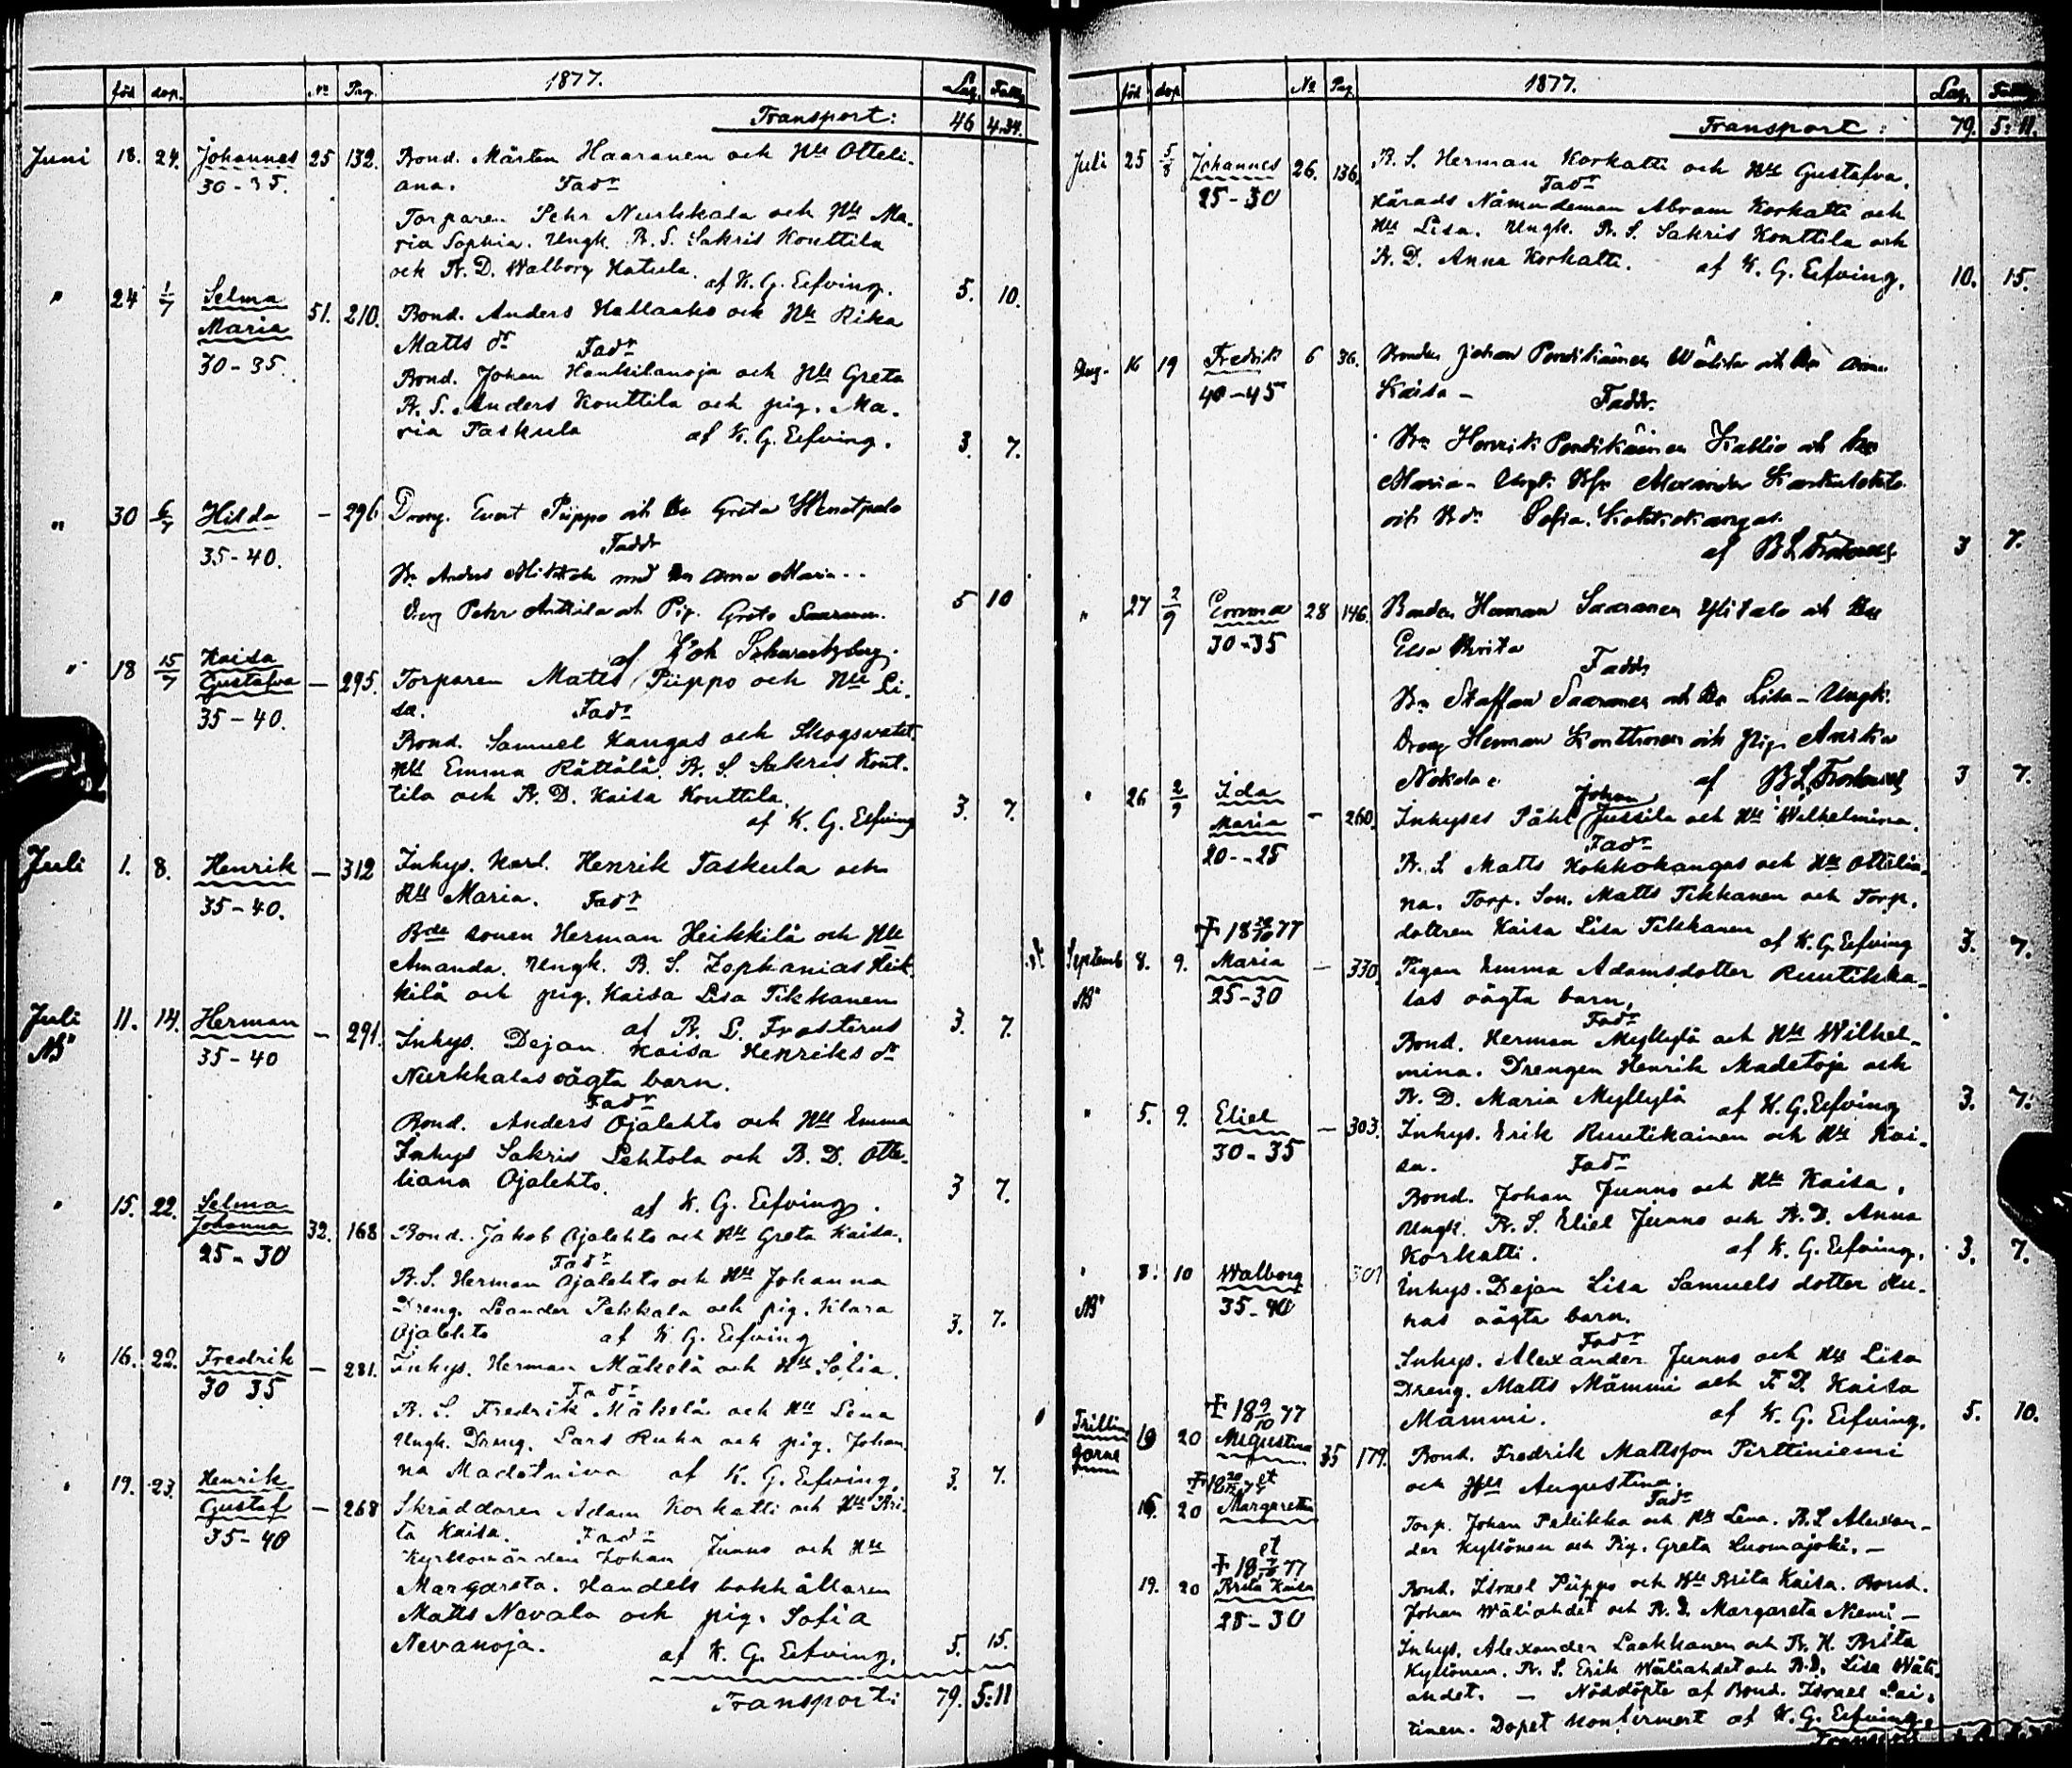 föd dop. No Pag. 1877. Lag. Fattig
Transport: 46 4.34.
Juni 18. 24. Johannes 25 132. Bond. Mårten Haaranen och Hu Otteli-
30-35. ana. Fadr
Torparen Pehr Nurkkala och Hu Ma-
ria Sophia. Ungk. B. S. Sakris Konttila
och B. D. Walborg Hatula. af K. G. Eefving. 5. 10.
" 24 1/7 Selma Maria 51. 210. Bond. Anders Hallaaho och Hu Rika
30-35. Matts dr Fadr
Bond. Johan Hankilanoja och Hu Greta
B. S. Anders Konttila och pig. Ma-
ria Taskula af K. G. Eefving. 3. 7.
" 30 6/7 Hilda - 296 Dreng. Evert Piippo och Hu Greta
35-40. Faddr
Bn Anders med Hu Anna Maria..
Dreng Pehr Anttila och Pig. Greta Saaranen. 5 10
af Joh Schwartzberg.
" 18 15/7 Kaisa Gustafva - 295. Torparen Matts Piippo och Hu Li-
35-40. sa. Fadr
Bond. Samuel Kangas och Skogsvakt.
Hu Emma Rättälä. B. S. Sakris Kont-
tila och B. D. Kaisa Konttila.
af K. G. Eefving 3. 7.
Juli 1. 8. Henrik - 312 Inhys. Karl. Henrik Taskula och
35-40. Hu Maria. Fadr
Bde sonen Herman Heikkilä och Hu
Amanda. Ungk. B. S. Zephanias Heik-
kilä och pig. Kaisa Lisa Tikkanen
af B. L. Frosterus 3. 7.
Juli NB 11. 14. Herman - 291. Inhys. Dejan Kaisa Henriks dr
35-40 Nurkkalas oägta barn.
Fadr
Bond. Anders Ojalehto och Hu Emma
Inhys Sakris Lehtola och B. D. Otte-
liana Ojalehto. 3 7.
af K. G. Eefving.
" 15. 22. Selma Johanna 32. 168 Bond. Jakob Ojalehto och Hu Greta Kaisa.
25-30 Fadr
B. S. Herman Ojalehto och Hu Johanna
Dreng. Leander Pekkala och pig. Klara
Ojalehto af K. G. Eefving 3. 7.
" 16. 22. Fredrik - 281. Inhys. Herman Mäkelä och Hu Sofia.
30 35 Fadr
B. S. Fredrik Mäkelä och Hu Lena
Ungk. Dreng. Lars Ruha och pig. Johan-
na Madetniva af K. G. Eefving 3. 7.
" 19. 23. Henrik Gustaf - 268 Skräddaren Adam Korkatti och Hu Bri-
35-40 ta Kaisa. Fadr
Kyrkovärden Johan Junno och Hu
Margareta. Handels bokhållaren
Matts Nevala och pig. Sofia
Nevanoja. af K. G. Eefving. 5. 15.
Transport: 79. 5:11
föd dop No Pag. 1877. Lag. Fattig
Transport: 79. 5:11.
Juli 25 5/8 Johannes 26. 136. B. S. Herman Korkatti och Hu Gustafva.
25-30 Fadr
Härads Nämndeman Abram Korkatti och
Hu Lisa. Ungk. B. S. Sakris Konttila och
B. D. Anna Korkatti. af K. G. Eefving. 10. 15.
Aug. 16 19 Fredrik 6 36. Bonden Johan Pendikäinen och Hu Anna
40-45 Kaisa - Faddr.
Bn Henrik Pendikäinen Kallio och Hu
Maria - Ungk. Alexander
och Bdr Sofia Kokkokangas.
af B L Frosterus 3 7.
" 27 2/9 Emma 28 146. Bonden Herman Saaranen Ylitalo och Hu
30-35 Elsa Brita
Faddr
Bn Staffan Saaranen och Hu Lisa - Ungk.
Dreng Herman Konttinen och Pig.
af B L Frosterus 3 7.
" 26 2/9 Ida Maria - 260. Inhyses Påhl Johan Jussila och Hu Wilhelmina.
20--25 Fadr
B. S Matts Kokkokangas och Hu Ottilia-
na. Torp. Son. Matts Tikkanen och Torp.
dottren Kaisa Lisa Tikkanen af K. G. Eefving 3. 7.
Septemb NB 8. 9. Maria - 330. Pigan Emma Adamsdotter Ruutikka-
25-30 las oägta barn.
Fadr
Bond. Herman Myllylä och Hu Wilhel-
mina. Drengen Henrik Madetoja och
B. D. Maria Myllylä af K. G. Eefving 3. 7.
" 5. 9. Eliel - 303. Inhys. Erik Ruutikainen och Hu Kai-
30-35 sa. Fadr
Bond. Johan Junno och Hu Kaisa.
Ungk. B. S. Eliel Junno och B. D. Anna
Korkatti. af K. G. Eefving. 3. 7.
" NB 8. 10 Walborg 301 Inhys. Dejan Lisa Samuels dotter
35-40 oägta barn.
Fadr
Inhys. Alexander Junno och Hu Lisa
Dreng. Matts Mämmi och B. D. Kaisa
Mämmi. af K. G. Eefving. 5. 10.
† 18 9/10 77
Trillingarne 19 20 Augustina 35 179. Bond. Fredrik Mattsson Pirttiniemi
och Hu Augustina.
Fadr
16. 20 Margaretha Torp. Johan Palikka och Hu Lena. B. S Alexan-
der Kyllönen och Pig. Greta Luomajoki. -
et
19. 20 Brita Kaisa Bond. Israel Piippo och Hu Brita Kaisa. Bond.
25-30 Johan Wäliahdet och B. D. Margareta Niemi -
Inhys. Alexander Laakkonen och B. H. Brita
Kyllönen. B. S. Erik Wäliahdet och B. D. Lisa Wäli-
ahdet. - Nöddöpte af Bond. Israel Lai-
tinen. Dopet konfirmert af K. G. Eefving.